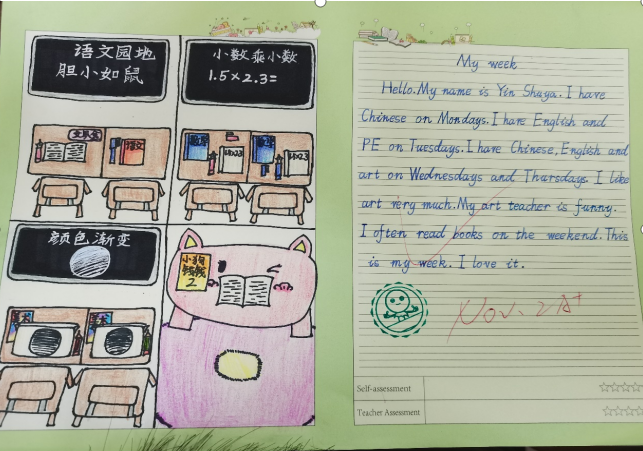 语文园地
胆小如鼠
小数乘小数
1.5×2.3=
颜色渐变
小狗
钱钱
2
My week
Hello. My name is Yin Shuya. I have
Chinese on Mondays. I have English and
PE on Tuesdays. I have Chinese, English and
art on Wednesdays and Thursdays. I like
art very much. My art teacher is funny.
I often read books on the weekend. This
is my week. I love it.
Nov. 2 A+
Self-assessment
Teacher Assessment